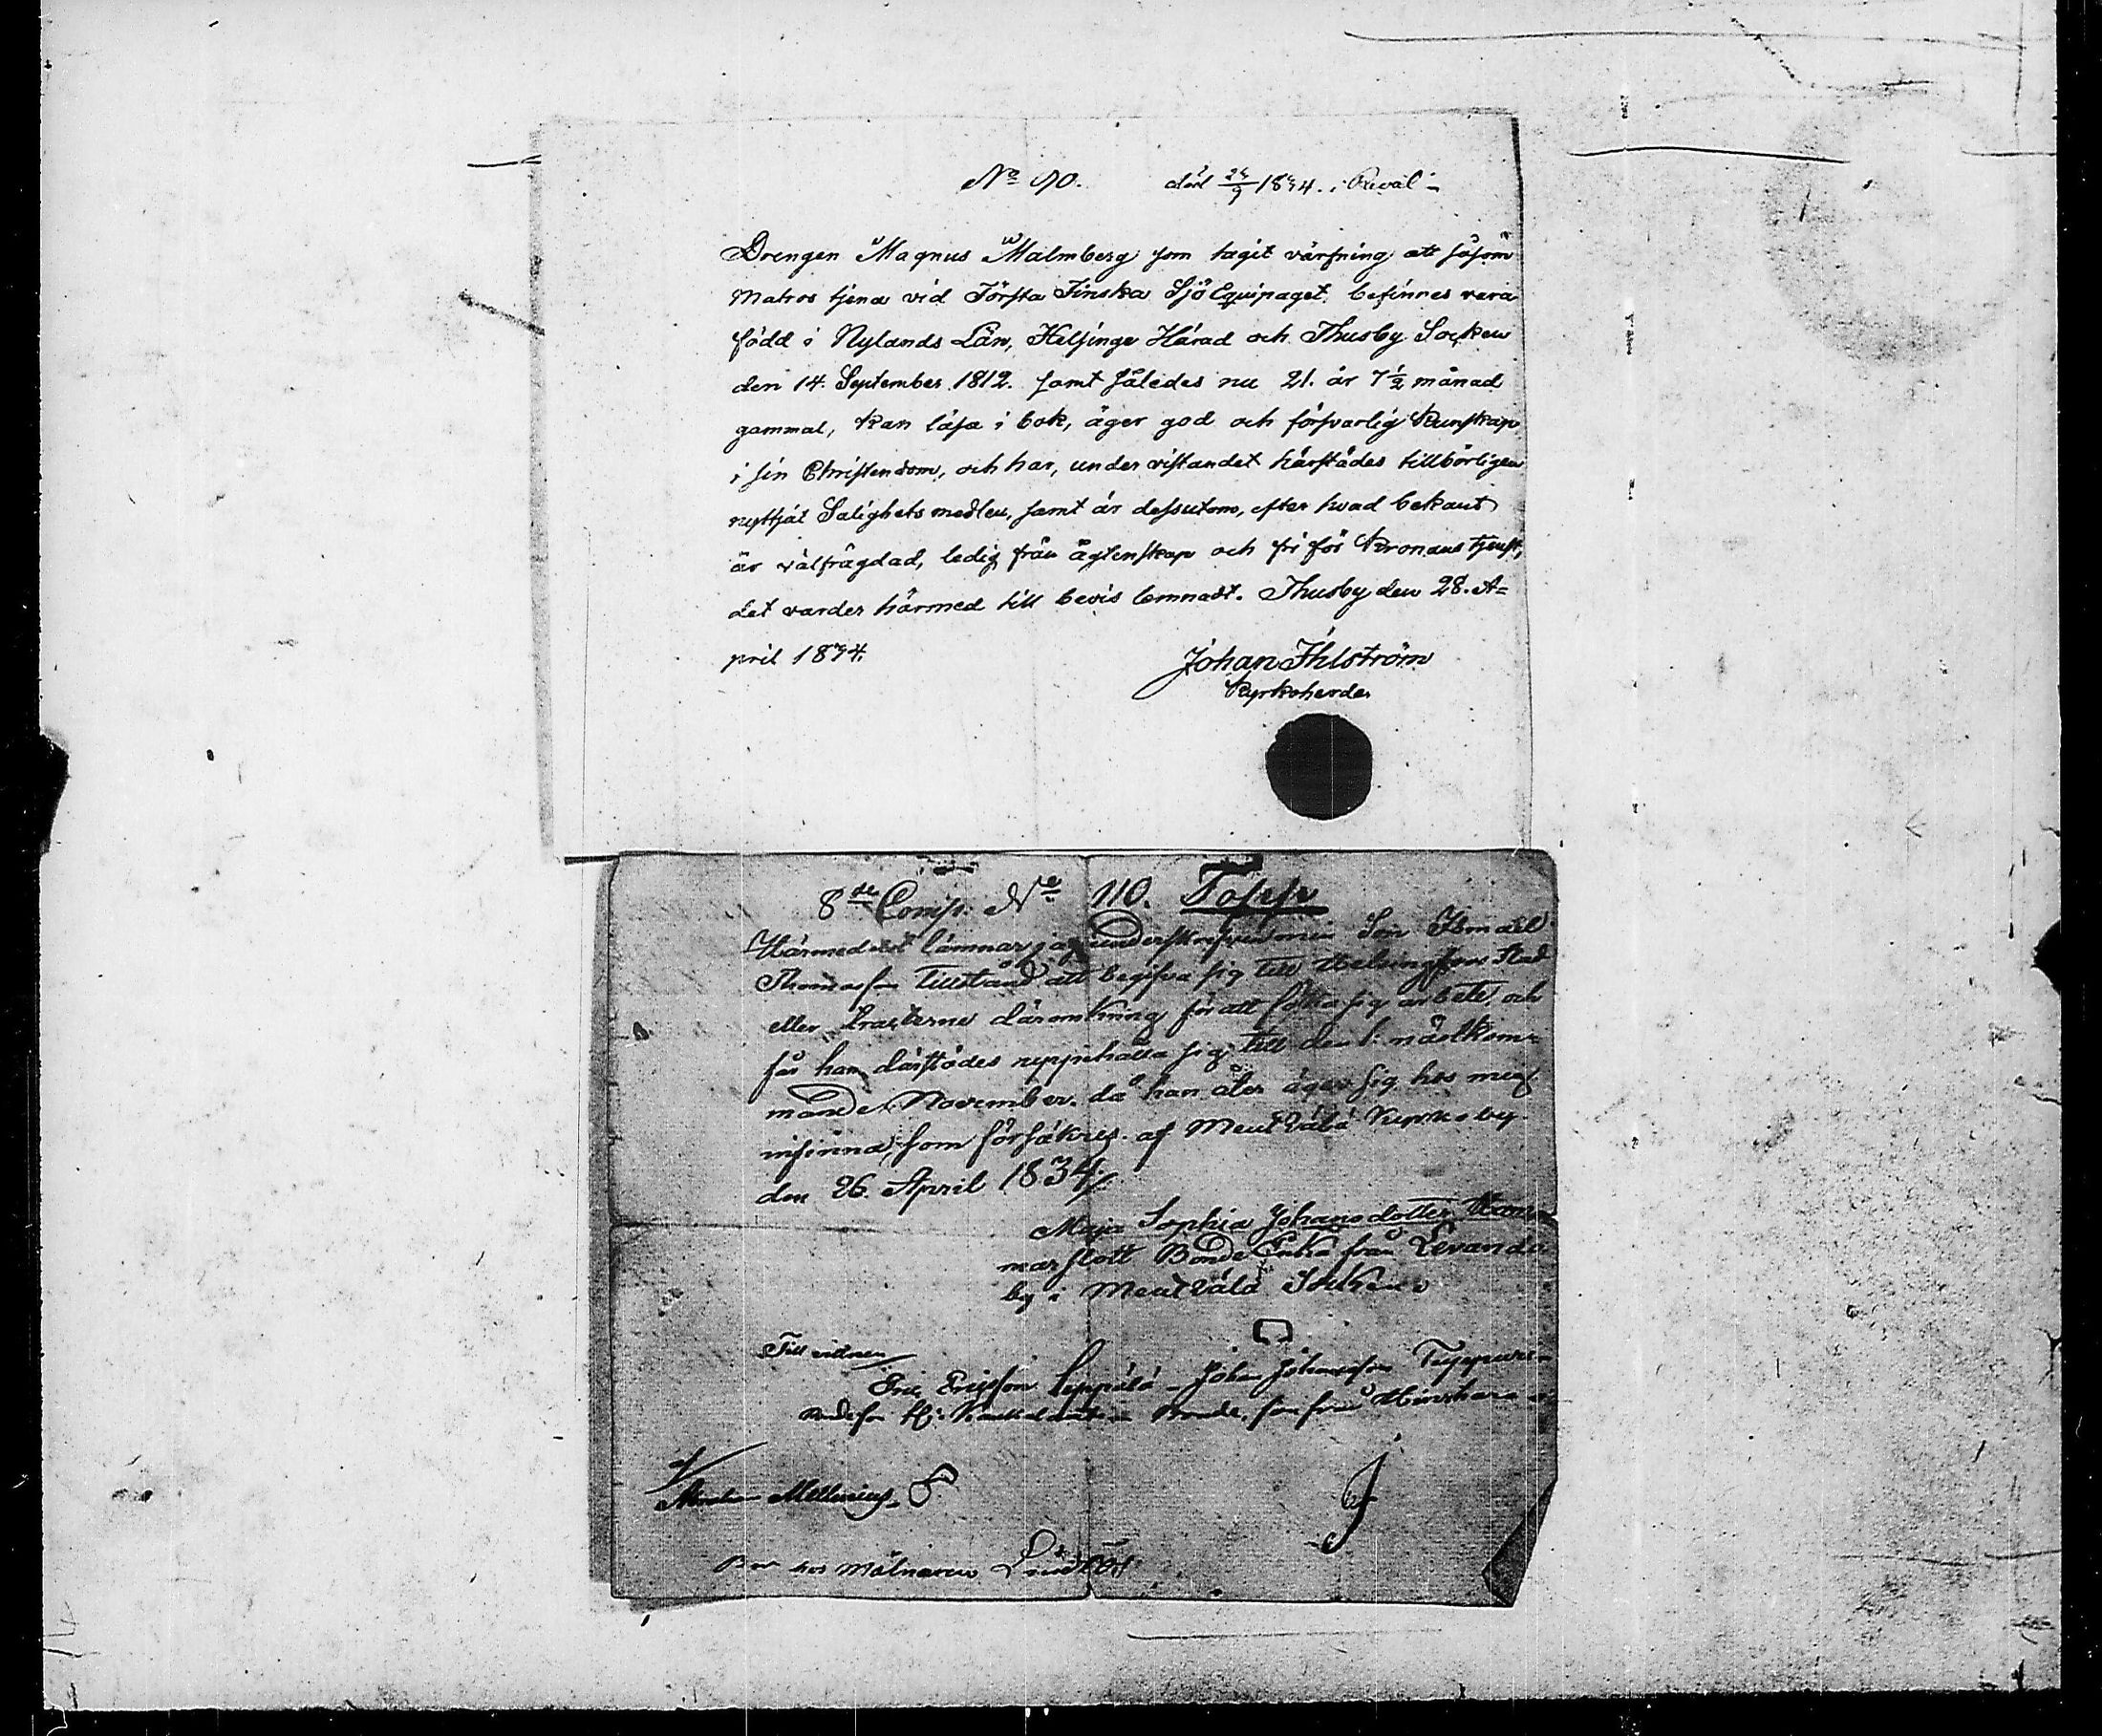 No 90. död 24/9 1834. i Reval
Drengen Magnus Malmberg som tagit värfning att såsom
Matros tjena vid Första Finska Sjö Equipaget, befinnes vara
född i Nylands Län, Helsinge Härad och Thusby Socken
den 14. September 1812. samt således nu 21. år 7½ månad
gammal, kan läsa i bok, äger god och försvarlig Kunskap
i sin Christendom, och har, under vistandet härstädes tillbörligen
nyttjat Salighets medlen, samt är dessutom, efter hvad bekant
är välfrägdad, ledig från ägtenskap och fri för Kronans tjenst,
det varder härmed till bevis lemnadt. Thusby den 28. A=
pril 1834.
Johan Ihlström
Kyrkoherde.
8de Comp. No 110. Topp
Härmedelst lämnar jag underskrifvne min Son Ismael
Thomasson Tillstånd att begifva sig till Helsingfors Stad
eller Tracterne däromkring för att söka sig arbete, och
får han därstädes uppehålla sig till den 1: nästkom=
mande November. då han åter äger sig hos mig
infinna, som försäkres. af Mentzälä Kyrkoby
den 26. April 1834
Maja Sophia Johansdotter
Bonde Enka från Levanda
by i Mentzälä Sokn
Till vittnen
Eric Ericsson Seppälä - Johan Johansson
Bonde son från
af
Mellenius
Bor hos Mölnaren